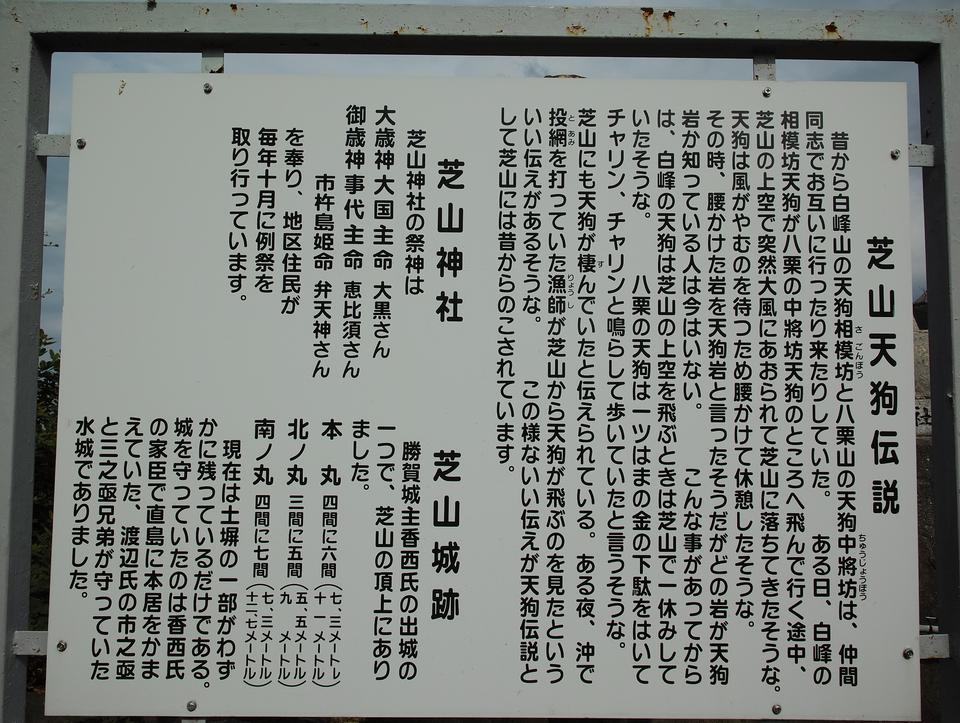 芝山天狗伝説
昔から白峰山の天狗相模坊と八栗山の天狗中將坊は、仲間
同志でお互いに行ったり来たりしていた。 ある日、白峰の
相模坊天狗が八栗の中將坊天狗のところへ飛んで行く途中、
芝山の上空で突然大風にあおられて芝山に落ちてきたそうな。
天狗は風がやむのを待つため腰かけて休憩したそうな。
その時、腰かけた岩を天狗岩と言ったそうだがどの岩が天狗
岩か知っている人は今はいない。 こんな事があってから
は、白峰の天狗は芝山の上空を飛ぶときは芝山で一休みして
いたそうな。 八栗の天狗は一ツはまの金の下駄をはいて
チャリン、チャリンと鳴らして歩いていたと言うそうな。
芝山にも天狗が棲んでいたと伝えられている。ある夜、沖で
投網を打っていた漁師が芝山から天狗が飛ぶのを見たという
いい伝えがあるそうな。 この様ないい伝えが天狗伝説と
して芝山には昔からのこされています。
芝山神社
芝山神社の祭神は
大歳神大国主命 大黒さん
御歳神事代主命 恵比須さん
市杵島姫命 弁天神さん
を奉り、地区住民が
毎年十月に例祭を
取り行っています。
芝山城跡
勝賀城主香西氏の出城の
一つで、芝山の頂上にあり
ました。
本 丸 四間に六間(七、三メートル 十一メートル)
北ノ丸 三間に五間(五、五メートル 九 メートル)
南ノ丸 四間に七間(七、三メートル 十二、七メートル)
現在は土塀の一部がわず
かに残っているだけである。
城を守っていたのは香西氏
の家臣で直島に本居をかま
えていた、渡辺氏の市之亟
と三之亟兄弟が守っていた
水城でありました。